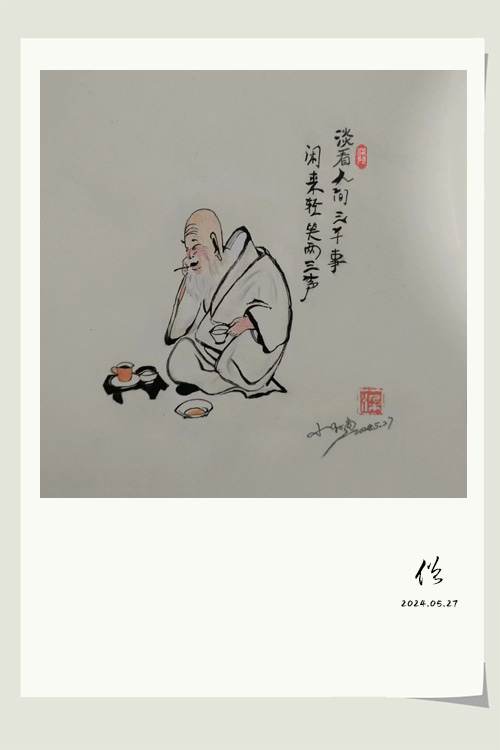 淡看人间三千事
闲来轻笑两三声
2024.5.27
2024.05.27